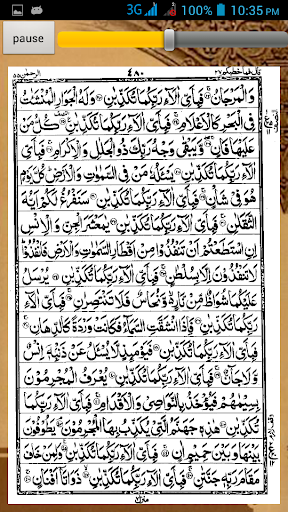 3G 100% 10:35 PM
pause
قال فما خطبكم ٢٧ ٤٨٠ الرحمن ٥٥
وَ الْمَرْجَانُ فَبِاَيِّ اٰلَآءِ رَبِّكُمَا تُكَذِّبٰنِ وَلَهُ الْجَوَارِ الْمُنْشَئٰتُ
فِى الْبَحْرِ كَالْاَعْلَامِ فَبِاَيِّ اٰلَآءِ رَبِّكُمَا تُكَذِّبٰنِ كُلُّ مَنْ
عَلَيْهَا فَانٍ وَّيَبْقٰى وَجْهُ رَبِّكَ ذُو الْجَلٰلِ وَالْاِكْرَامِ
فَبِاَيِّ اٰلَآءِ رَبِّكُمَا تُكَذِّبٰنِ يَسْئَلُهٗ مَنْ فِى السَّمٰوٰتِ وَالْاَرْضِ كُلَّ يَوْمٍ
هُوَ فِيْ شَاْنٍ فَبِاَيِّ اٰلَآءِ رَبِّكُمَا تُكَذِّبٰنِ سَنَفْرُغُ لَكُمْ اَيُّهَ
الثَّقَلٰنِ فَبِاَيِّ اٰلَآءِ رَبِّكُمَا تُكَذِّبٰنِ يٰمَعْشَرَ الْجِنِّ وَ الْاِنْسِ
اِنِ اسْتَطَعْتُمْ اَنْ تَنْفُذُوْا مِنْ اَقْطَارِ السَّمٰوٰتِ وَالْاَرْضِ فَانْفُذُوْا
لَا تَنْفُذُوْنَ اِلَّا بِسُلْطٰنٍ فَبِاَيِّ اٰلَآءِ رَبِّكُمَا تُكَذِّبٰنِ يُرْسَلُ
عَلَيْكُمَا شُوَاظٌ مِّنْ نَّارٍ وَّنُحَاسٌ فَلَا تَنْتَصِرٰنِ فَبِاَيِّ اٰلَآءِ
رَبِّكُمَا تُكَذِّبٰنِ فَاِذَا انْشَقَّتِ السَّمَآءُ فَكَانَتْ وَرْدَةً كَالدِّهَانِ
فَبِاَيِّ اٰلَآءِ رَبِّكُمَا تُكَذِّبٰنِ فَيَوْمَئِذٍ لَّا يُسْئَلُ عَنْ ذَنْبِهٖٓ اِنْسٌ
وَّلَا جَآنٌّ فَبِاَيِّ اٰلَآءِ رَبِّكُمَا تُكَذِّبٰنِ يُعْرَفُ الْمُجْرِمُوْنَ
بِسِيْمٰهُمْ فَيُؤْخَذُ بِالنَّوَاصِيْ وَ الْاَقْدَامِ فَبِاَيِّ اٰلَآءِ رَبِّكُمَا
تُكَذِّبٰنِ هٰذِهٖ جَهَنَّمُ الَّتِيْ يُكَذِّبُ بِهَا الْمُجْرِمُوْنَ يَطُوْفُوْنَ
بَيْنَهَا وَبَيْنَ حَمِيْمٍ اٰنٍ فَبِاَيِّ اٰلَآءِ رَبِّكُمَا تُكَذِّبٰنِ وَلِمَنْ خَافَ
مَقَامَ رَبِّهٖ جَنَّتٰنِ فَبِاَيِّ اٰلَآءِ رَبِّكُمَا تُكَذِّبٰنِ ذَوَاتَآ اَفْنَانٍ